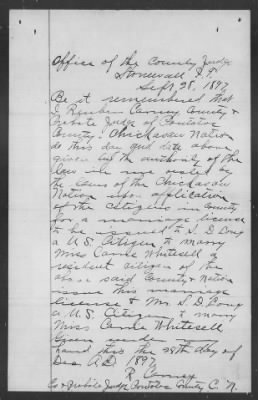 Office of the County Judge
Stonewall I.T.
Sept 28, 1897
Be it remembered that
I Reuben Carney County &
Probate Judge of Pontotoc
County Chickasaw Nation
do this day and date above
given by the authority of the
law in me vested by
the laws of the Chickasaw
Nation upon application
of the citizens in County
for a marriage license
to be issued to S. D. Long
a U.S. Citizen to marry
Miss Carrie Whitesell a
resident citizen of the
above said County & Nation
issue this marriage
license to Mr. S. D. Long
a U.S. Citizen to marry
Miss Carrie Whitesell
Given under my
hand this the 28th day of
A.D. 1897
R Carney
Co & Probate Judge Pontotoc County C. N.